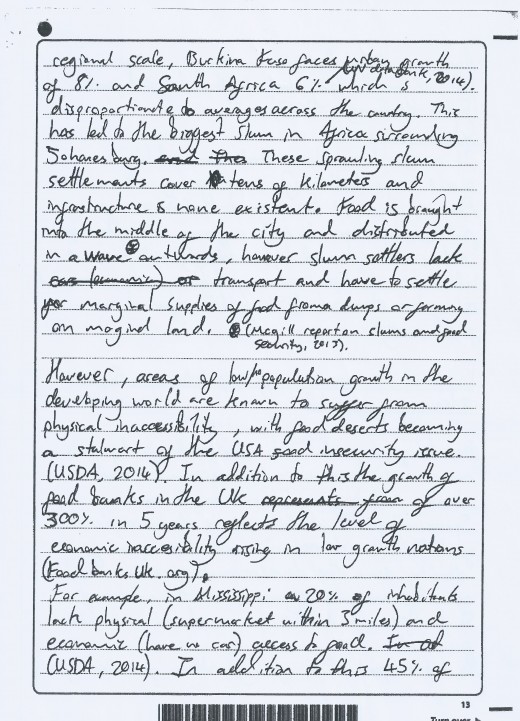 regional scale, Burkina Faso faces urban growth
(UN databank, 2014).
of 8% and South Africa 6% which is
disproportionate to averages across the country. This
has led to the biggest slum in Africa surrounding
Johanesburg. and This These sprawling slum
settlements cover tens of kilometers and
infrastructure is none existent. Food is brought
into the middle of the city and distributed
in a wave outwards, however slum settlers lack
(economic) or transport and have to settle
for marginal supplies of food from dumps or farming
on marginal land. (Mcgill report on slums and food
security, 2013).
However, areas of low/no population growth in the
developing world are known to suffer from
physical inaccessibility, with food deserts becoming
a stalwart of the USA food insecurity issue.
(USDA, 2014). In addition to this the growth of
food banks in the UK represents of over
300% in 5 years reflects the level of
economic inaccesibility arising in low growth nations
(Food banks UK.org).
For example, in Mississippi 20% of inhabitants
lack physical (supermarket within 3 miles) and
economic (have no car) access to food.
(USDA, 2014). In addition to this 45% of
13
Turn over